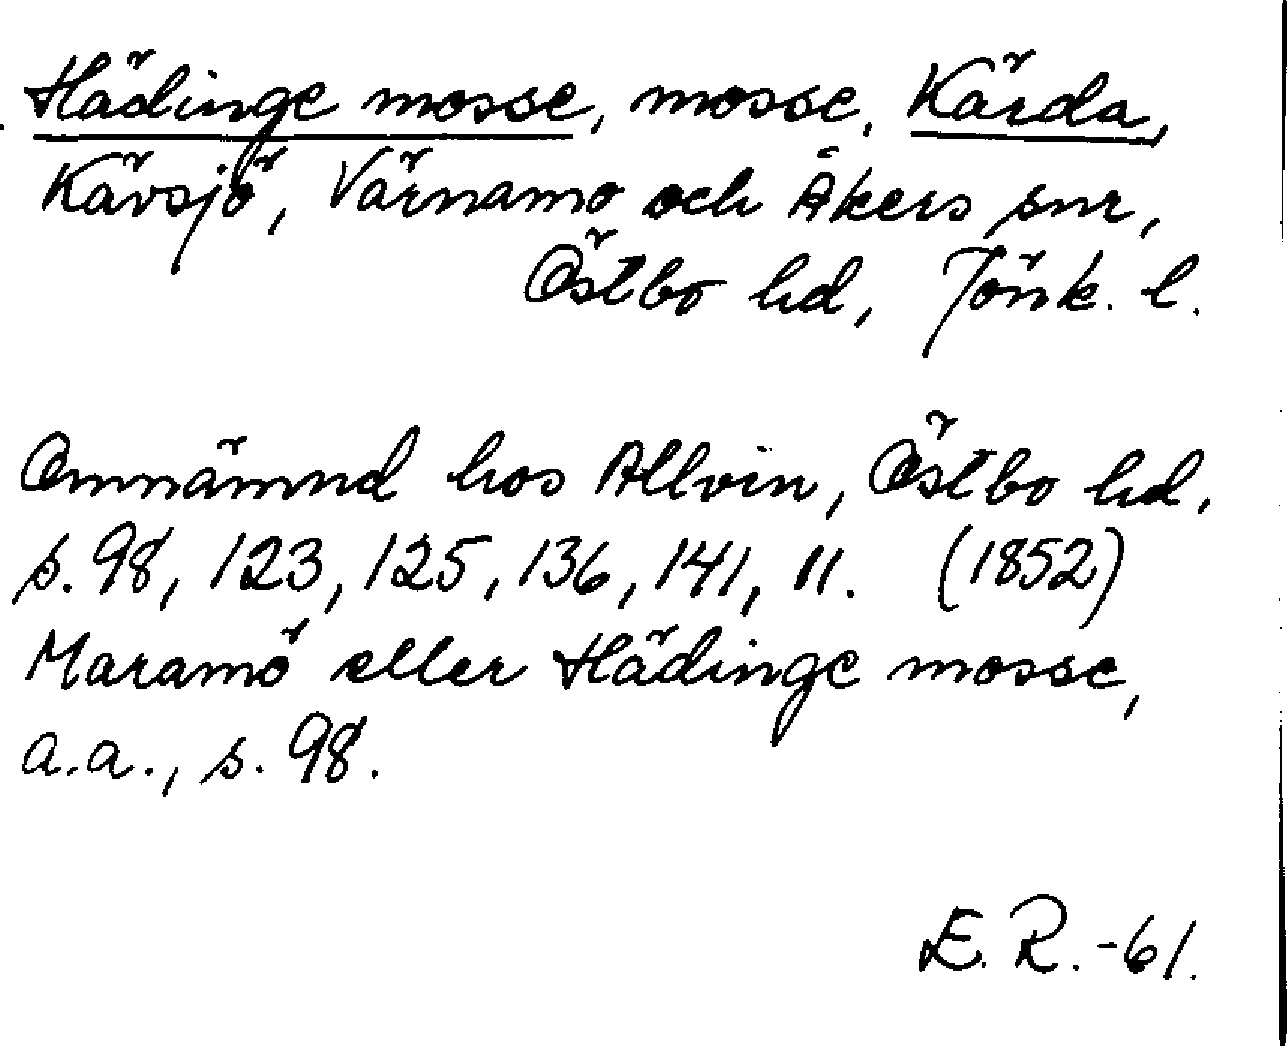 Hädinge mosse, mosse, Kärda,
Kävsjö, Värnamo och Åkers snr,
Östbo hd, Jönk. l.
Omnämnd hos Allvin, Östbo hd,
s. 98, 123, 125, 136, 141, 11. (1852)
Maramö eller Hädinge mosse,
a.a., s. 98.
E. R. -61.